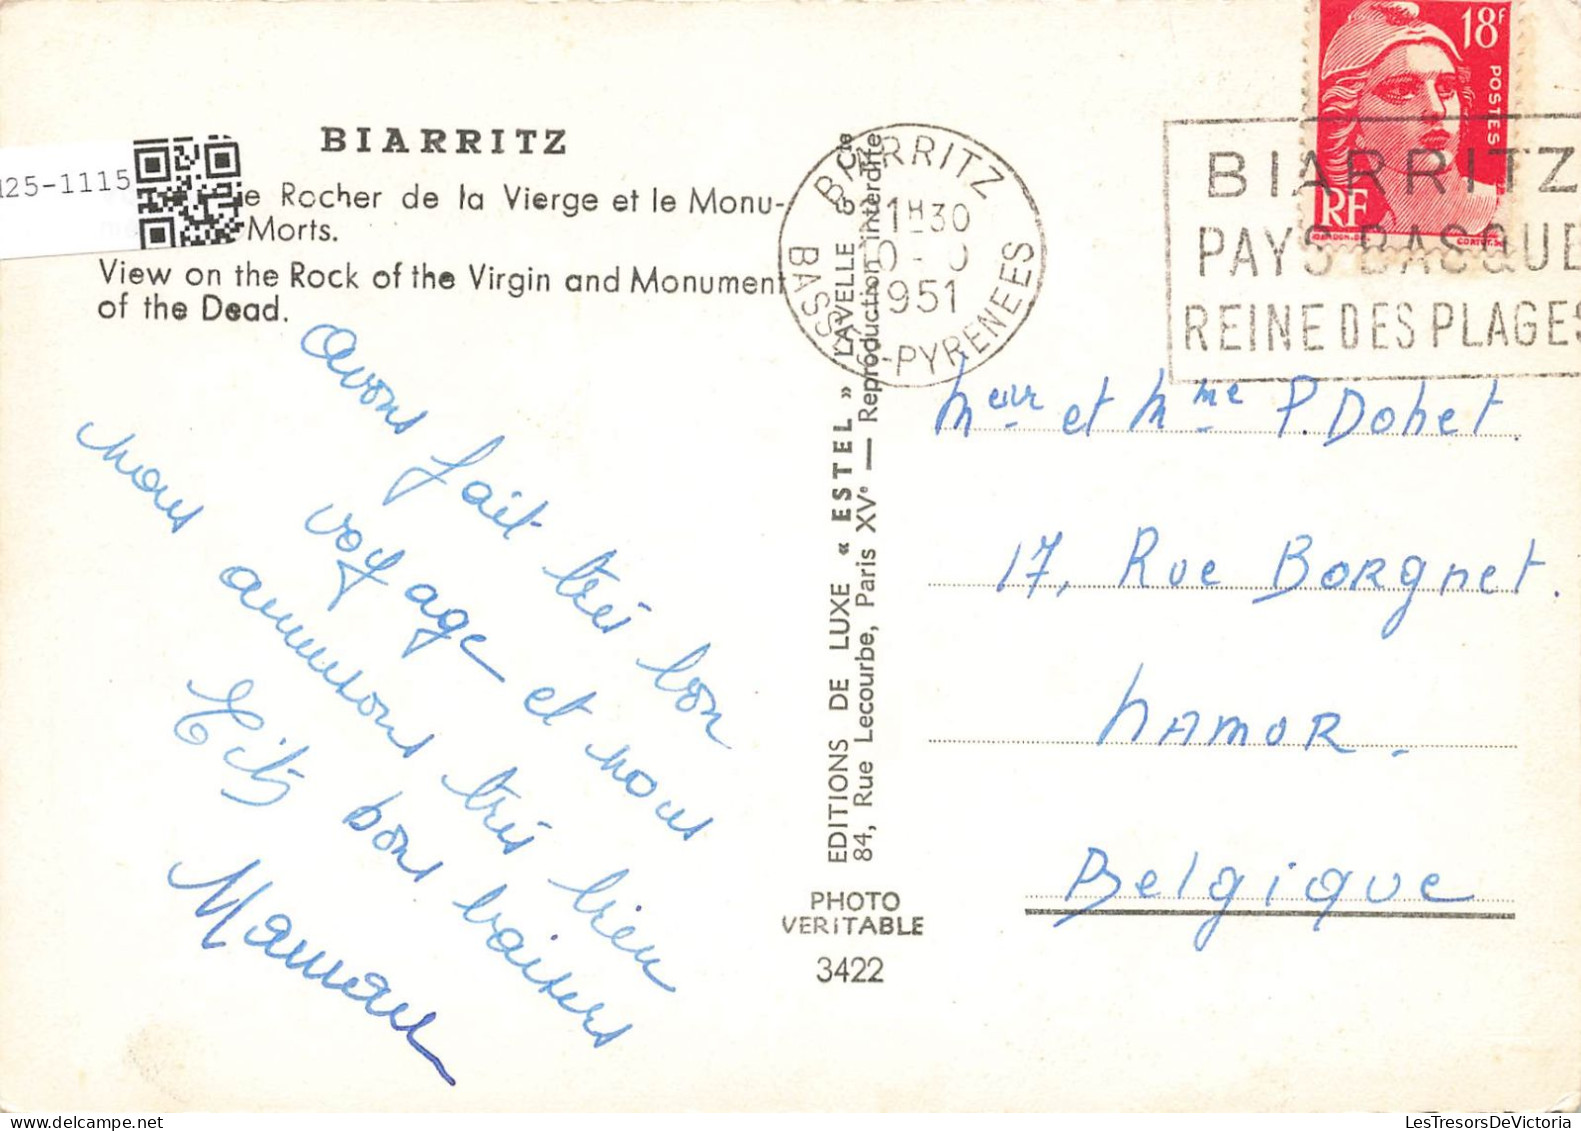 BIARRITZ
125-1115
e Rocher de la Vierge et le Monu-
Morts.
View on the Rock of the Virgin and Monument
of the Dead.
avons fait très bon
voyage et nous
nous amusons très bien
bons baisers
Maman
EDITIONS DE LUXE « ESTEL » LAVELLE & Cie
84, Rue Lecourbe, Paris XVe — Reproduction interdite
PHOTO
VERITABLE
3422
BIARRITZ
1H30
1951
BASSES-PYRENEES
18F
POSTES
RF
BIARRITZ
PAYS BASQUE
REINE DES PLAGES
Meur et Mme P. Dohet.
17, Rue Borgnet.
NAMUR.
Belgique
LesTresorsDeVictoria
www.delcampe.net
LesTresorsDeVictoria